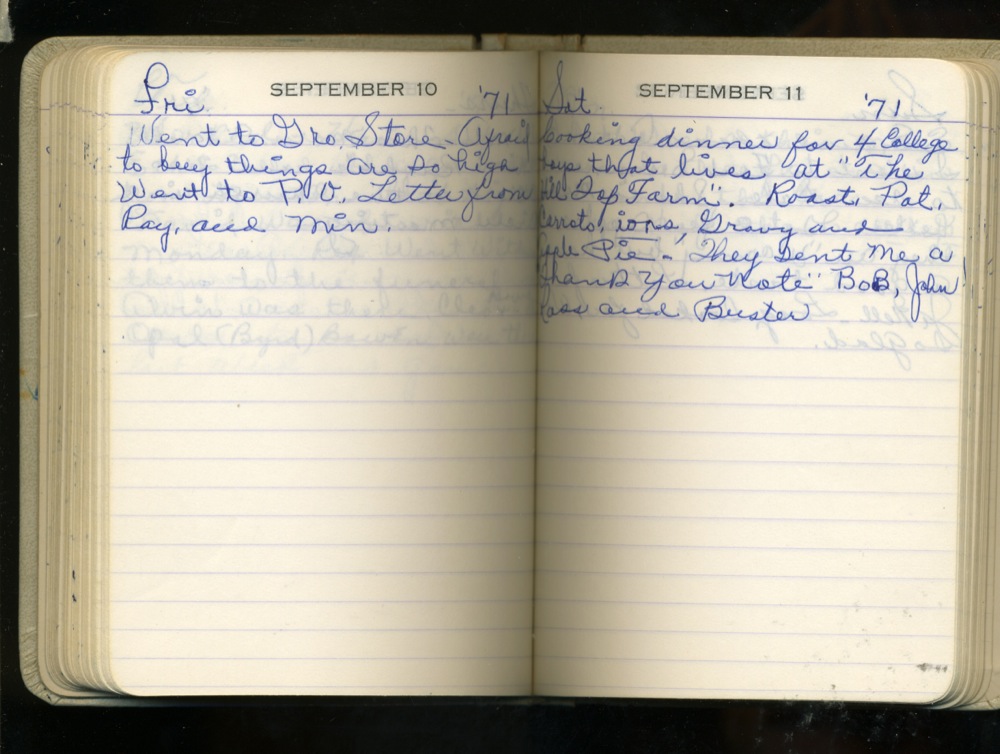 SEPTEMBER 10
Fri '71
Went to Gro. Store Afraid
to buy things are so high
Went to P.O. Letter from
Ray, and Min.
SEPTEMBER 11
Sat. '71
Cooking dinner for 4 College
boys that lives at "The
Hill Top Farm". Roast, Pot.
Carrots, ions, Gravy and
Apple Pie - They sent me a
thank you note" Bob, John
and Buster